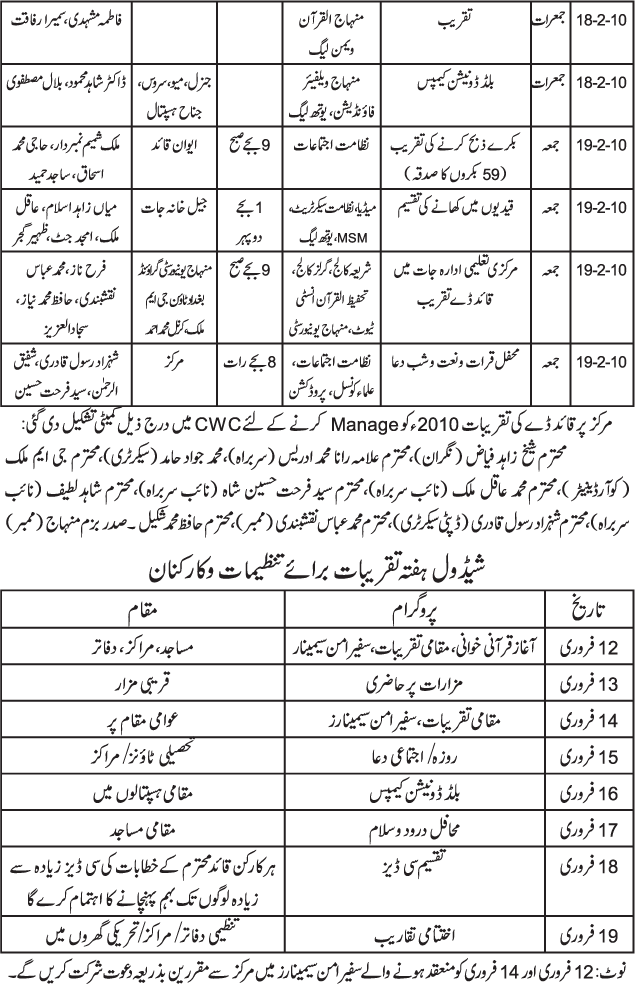 18-2-10 جمعرات تقریب منہاج القرآن ویمن لیگ فاطمہ مشہدی، سمیرا رفاقت
18-2-10 جمعرات بلڈ ڈونیشن کیمپس منہاج ویلفیئر فاؤنڈیشن، یوتھ لیگ جنرل، میو، سروس، جناح ہسپتال ڈاکٹر شاہد محمود، بلال مصطفوی
19-2-10 جمعہ بکرے ذبح کرنے کی تقریب (59 بکروں کا صدقہ) نظامت اجتماعات 9 بجے صبح ایوان قائد ملک شمیم نمبردار، حاجی محمد اسحاق، ساجد حمید
19-2-10 جمعہ قیدیوں میں کھانے کی تقسیم میڈیا، نظامت سیکرٹریٹ، MSM، یوتھ لیگ 1 بجے دوپہر جیل خانہ جات میاں زاہد اسلام، عاقل ملک، امجد جٹ، ظہیر گجر
19-2-10 جمعہ مرکزی تعلیمی ادارہ جات میں قائد ڈے تقریب شریعہ کالج، گرلز کالج، تحفیظ القرآن انسٹی ٹیوٹ، منہاج یونیورسٹی 9 بجے صبح منہاج یونیورسٹی گراؤنڈ بغداد ٹاؤن جی ایم ملک، کرنل محمد احمد فرح ناز، محمد عباس نقشبندی، حافظ محمد نیاز، سجاد العزیز
19-2-10 جمعہ محفل قرات و نعت و شب دعا نظامت اجتماعات، علماء کونسل، پروڈکشن 8 بجے رات مرکز شہزاد رسول قادری، شفیق الرحمٰن، سید فرحت حسین
مرکز پر قائد ڈے کی تقریبات 2010ء کو Manage کرنے کے لئے CWC میں درج ذیل کمیٹی تشکیل دی گئی:
محترم شیخ زاہد فیاض (نگران)، محترم علامہ رانا محمد ادریس (سربراہ)، محمد جواد حامد (سیکرٹری)، محترم جی ایم ملک
(کوآرڈینیٹر)، محترم محمد عاقل ملک (نائب سربراہ)، محترم سید فرحت حسین شاہ (نائب سربراہ)، محترم شاہد لطیف (نائب
سربراہ)، محترم شہزاد رسول قادری (ڈپٹی سیکرٹری)، محترم محمد عباس نقشبندی (ممبر)، محترم حافظ محمد شکیل ۔ صدر بزم منہاج (ممبر)
شیڈول ہفتہ تقریبات برائے تنظیمات و کارکنان
تاریخ پروگرام مقام
12 فروری آغاز قرآنی خوانی، مقامی تقریبات، سفیر امن سیمینار مساجد، مراکز، دفاتر
13 فروری مزارات پر حاضری قریبی مزار
14 فروری مقامی تقریبات، سفیر امن سیمینارز عوامی مقام پر
15 فروری روزہ/ اجتماعی دعا تحصیلی ٹاؤنز/ مراکز
16 فروری بلڈ ڈونیشن کیمپس مقامی ہسپتالوں میں
17 فروری محافل درود و سلام مقامی مساجد
18 فروری تقسیم سی ڈیز ہر کارکن قائد محترم کے خطابات کی سی ڈیز زیادہ سے
زیادہ لوگوں تک بہم پہنچانے کا اہتمام کرے گا
19 فروری اختتامی تقاریب تنظیمی دفاتر/ مراکز/ تحریکی گھروں میں
نوٹ: 12 فروری اور 14 فروری کو منعقد ہونے والے سفیر امن سیمینارز میں مرکز سے مقررین بذریعہ دعوت شرکت کریں گے۔